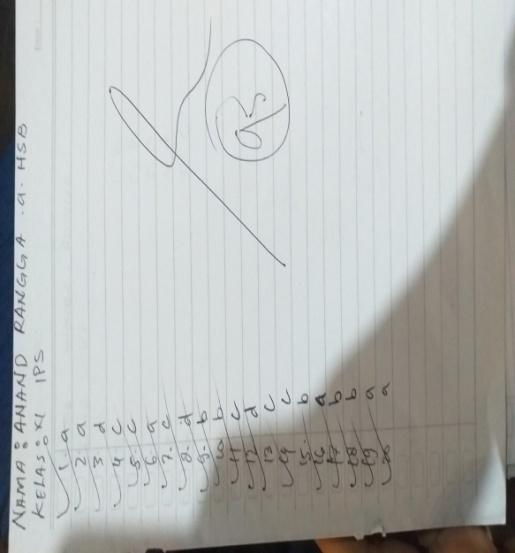 NAMA : ANAND RANGGA .a. HSB
KELAS : XI IPS
1 a
2 a
3 d
4 c
5. c
6. a
7. c
8. d
9. b
10 b
11 c
12 d
13 c
14 c
15. b
16 a
17 b
18 b
19 a
20 a
95